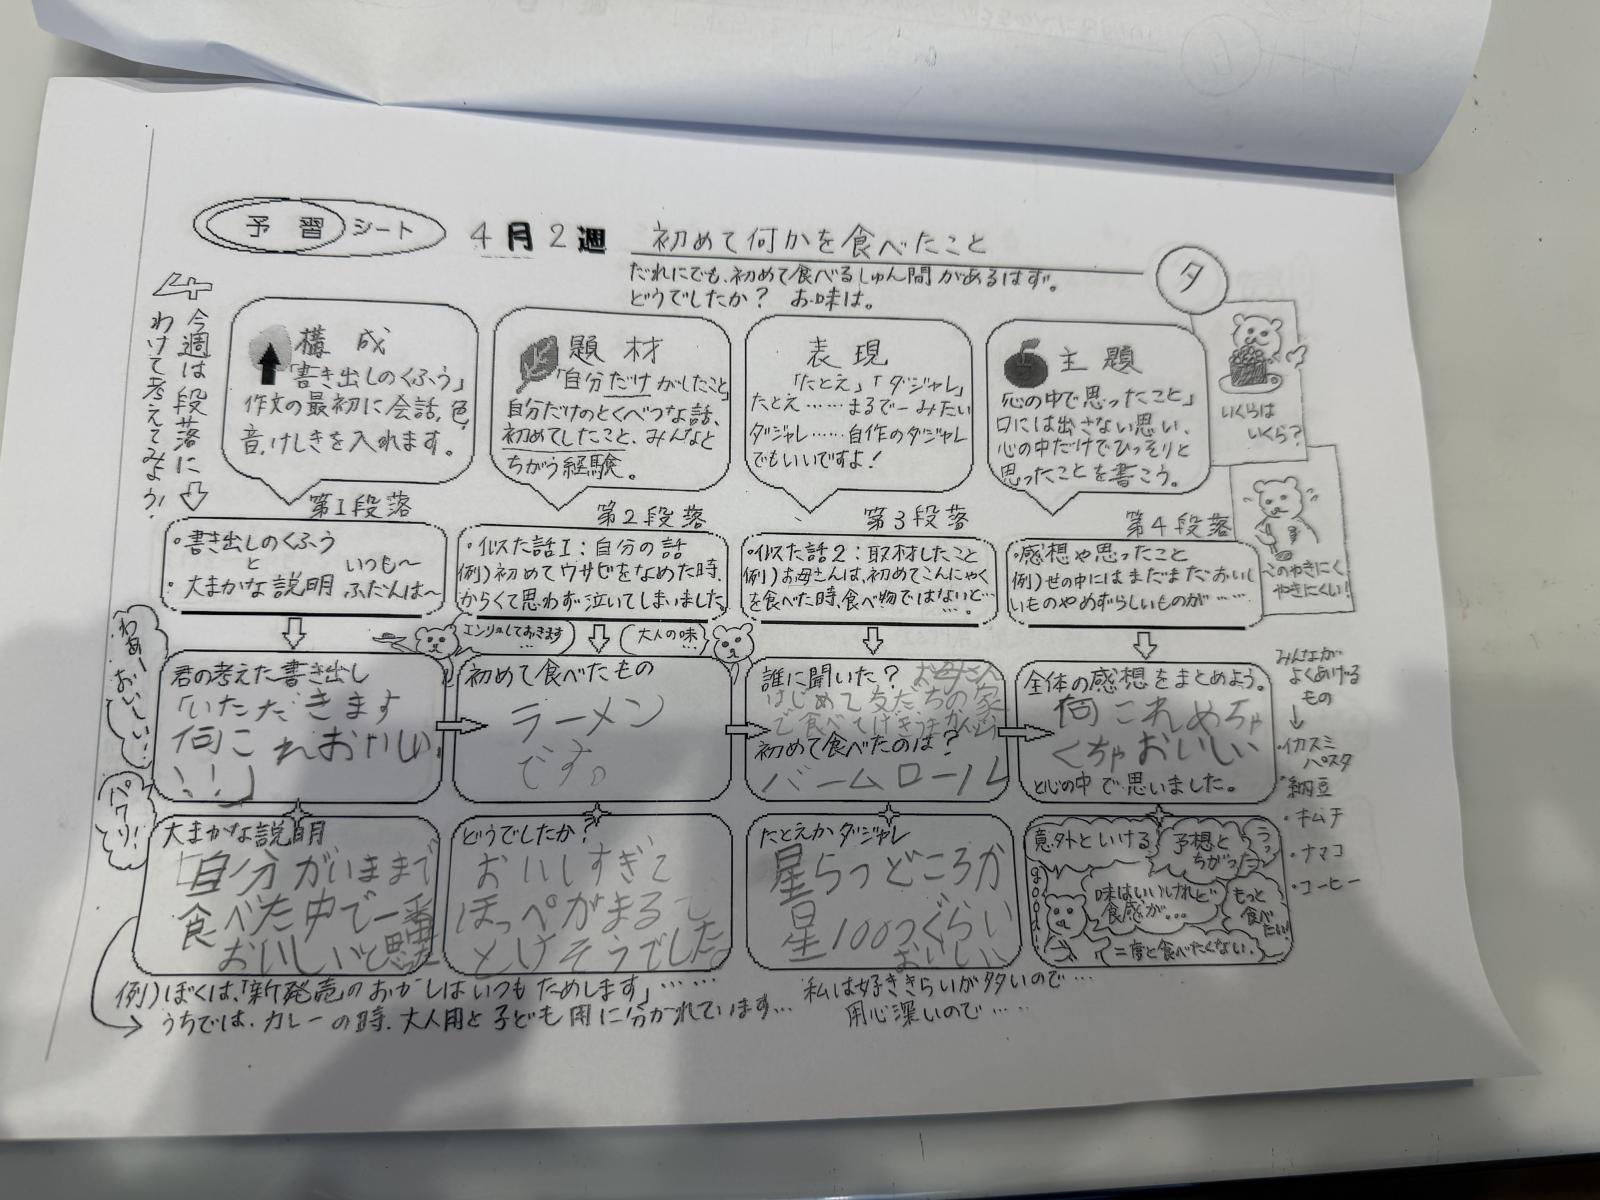 予習シート
4月2週 初めて何かを食べたこと
だれにでも、初めて食べるしゅん間があるはず。
どうでしたか? お味は。
タ
今週は段落に
わけて考えてみよう!
構成
「書き出しのくふう」
作文の最初に会話,色,
音,けしきを入れます。
題材
「自分だけがしたこと」
自分だけのとくべつな話、
初めてしたこと、みんなと
ちがう経験。
表現
「たとえ」「ダジャレ」
たとえ……まるで〜みたい
ダジャレ……自作のダジャレ
でもいいですよ!
主題
「心の中で思ったこと」
口には出さない思い、
心の中だけでひっそりと
思ったことを書こう。
いくらは
いくら?
このやきにく
やきにくい!
第1段落
・書き出しのくふう
と
・大まかな説明
いつも〜
ふだんは〜
第2段落
・似た話1:自分の話
例)初めてワサビをなめた時、
からくて思わず泣いてしまいました
第3段落
・似た話2:取材したこと
例)お母さんは、初めてこんにゃく
を食べた時、食べ物ではないと…
…。
第4段落
・感想や思ったこと
例)世の中にはまだまだおいし
いものやめずらしいものが……
わあーおいしい!
パクリ!
エンリョしておきます
…
大人の味…
君の考えた書き出し
「いただきます
何これおいしい
!!」
初めて食べたもの
ラーメン
です。
誰に聞いた? お母さん
はじめて友だちの家
で食べてげきうま
初めて食べたのは?
バームロール
全体の感想をまとめよう。
何これめちゃ
くちゃおいしい
と心の中で思いました。
みんなが
よくあげる
もの
・イカスミ
パスタ
・納豆
・キムチ
・ナマコ
・コーヒー
大まかな説明
「自分がいままで
食べた中で一番
おいしいと思
どうでしたか?
おいしすぎて
ほっぺがまるで
とけそうでした。
たとえかダジャレ
星5つどころか
星100つぐらい
おいしい
意外といける
予想と
ちがった
うっ
味はいいけれど
食感が…
もっと
食べたい!
二度と食べたくない。
例)ぼくは、「新発売のおかしはいつもためします」……
うちでは、カレーの時、大人用と子ども用に分かれています…
私は好ききらいが多いので…
用心深いので……